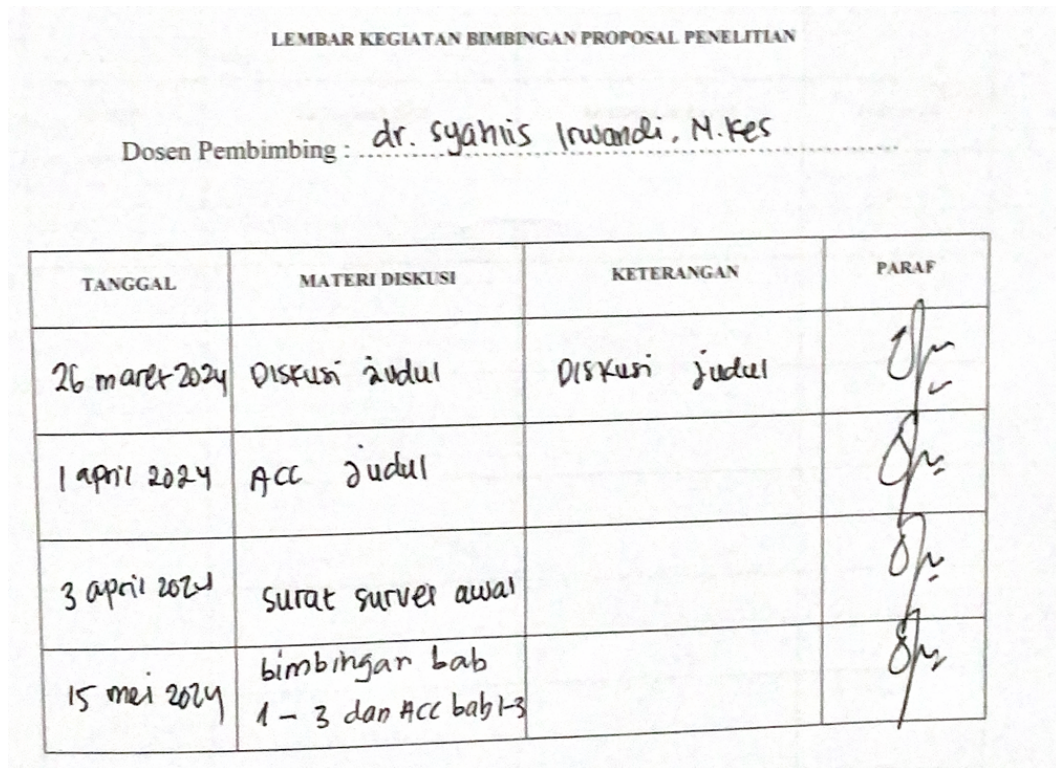 LEMBAR KEGIATAN BIMBINGAN PROPOSAL PENELITIAN
Dosen Pembimbing : dr. Syahlis Irwandi, M.Kes
TANGGAL MATERI DISKUSI KETERANGAN PARAF
26 maret 2024 Diskusi judul Diskusi judul
1 april 2024 ACC judul
3 april 2024 surat survei awal
15 mei 2024 bimbingan bab
1 - 3 dan Acc bab 1-3